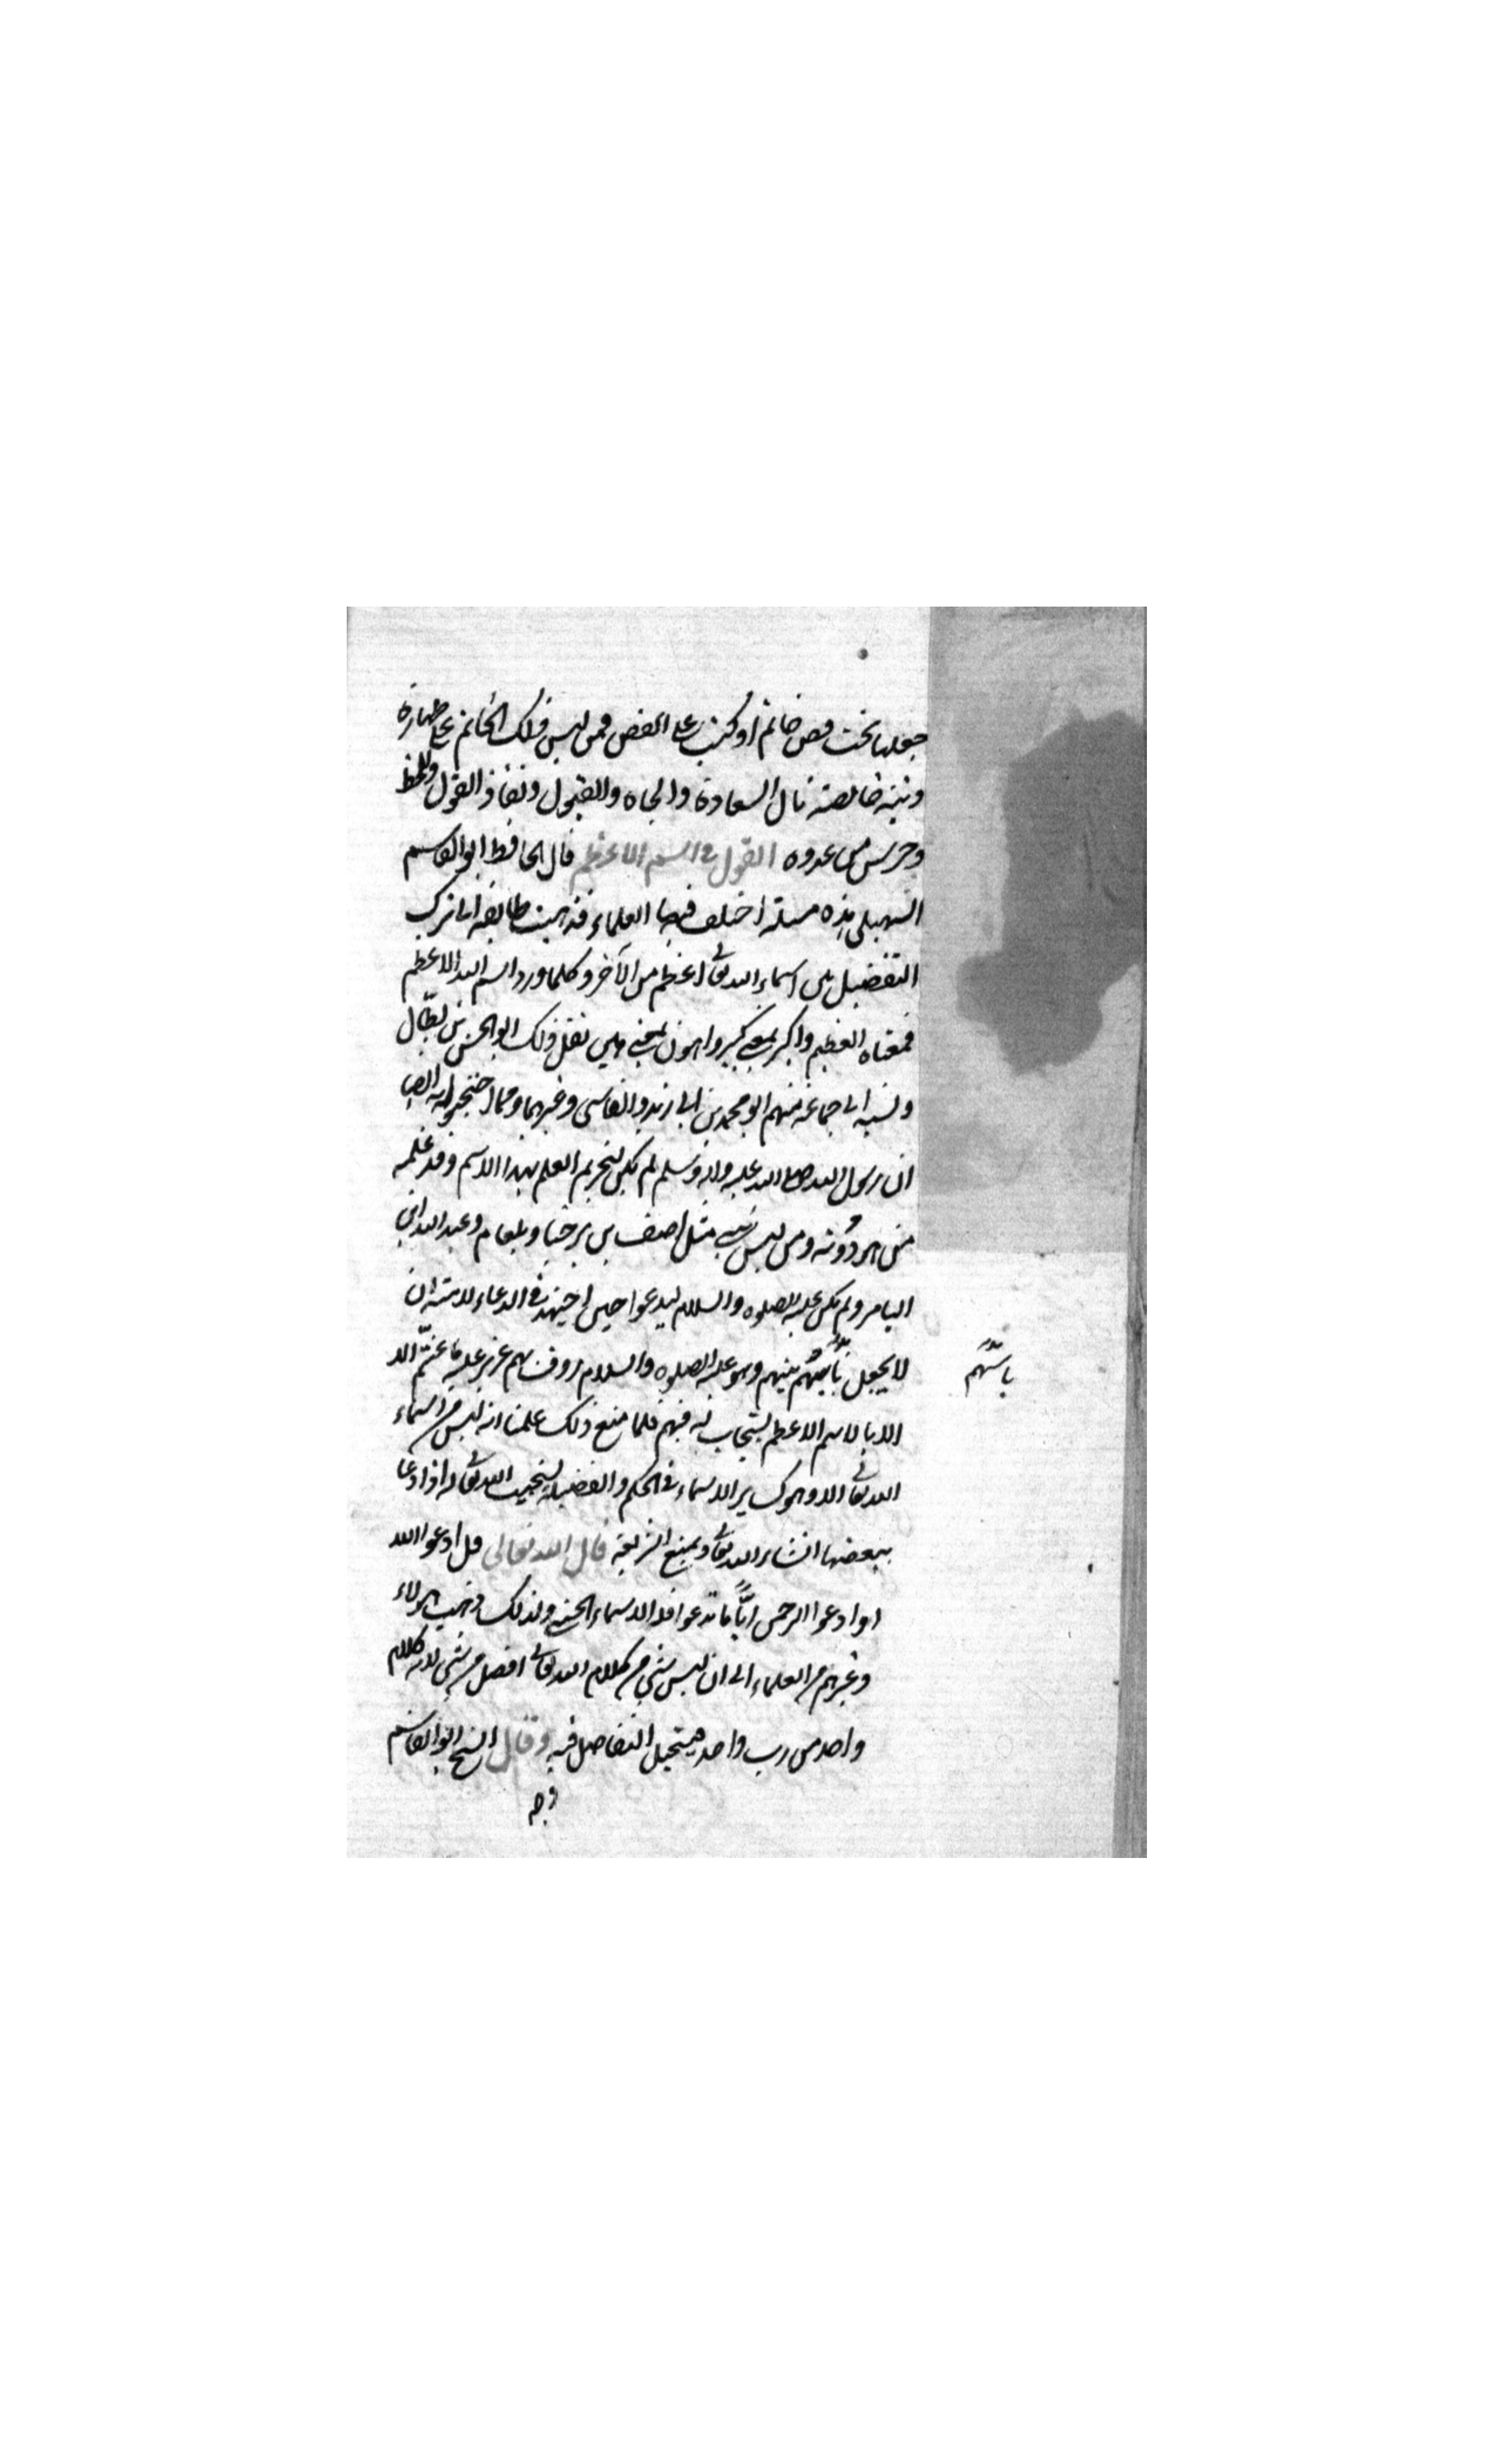 جعلها تحت فص خاتم او كتب على الفص فمن لبس ذلك الخاتم على طهارة
ونية خالصة نال السعادة والجاه والقبول ونفاذ القول
وحرس من عدوه القول في اسم الاعظم قال الحافظ ابو القاسم
السهيلي هذه مسئلة اختلف فيها العلماء فذهبت طائفة الى ترك
التفضيل بين اسماء الله تعا اعظم من الآخر وكلما ورد اسم الله الاعظم
فمعناه العظيم واكبر بمعنى كبير واهون بمعنى هين نقل ذلك ابو الحسن بن بطّال
ونسبه الى جماعة منهم ابو محمد بن ابي زيد والقابسي وغيرهما ومما احتجوا به ايضا
ان رسول الله صلى الله عليه واله وسلم لم يكن ليحرم العلم بهذا الاسم وقد علمه
من هو دونه ومن ليس بنبي مثل اصف بن برخيا وبلعام وعبد الله ابي
التامر ولم يكن عليه الصلوه والسلام ليدعوا حين اجتهد في الدعاء لامته ان
لا يجعل باسهم بينهم وهو عليه الصلوه والسلام رؤف بهم عزيز عليه ما عنتم الا
باسهم
الا بالاسم الاعظم ليستجاب له فيهم فلما منع ذلك علمنا انه ليس من اسماء
الله تعا الا وهو كساير الاسماء في الحكم والفضيلة يستجيب الله تعا له اذا دعا
ببعضها انشاء الله تعا ويمنع قال الله تعالى قل ادعوا الله
او ادعوا الرحمن ايًّا ما تدعوا فله الاسماء الحسنى ولذلك ذهب هولاء
وغيرهم من العلماء الى ان ليس شي من كلام الله تعالى افضل من شي لانه كلام
واحد من رب واحد فيستحيل التفاضل فيه وقال الشيخ ابو القاسم
وجه